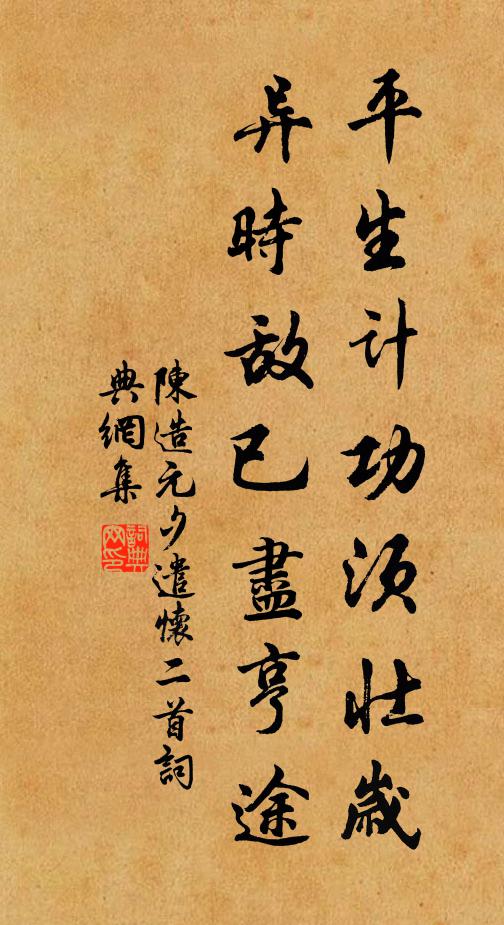 平生计功须壮岁
异時敌已盡亨途
陳造元夕遣懷二首詞
典網集
詞典网印